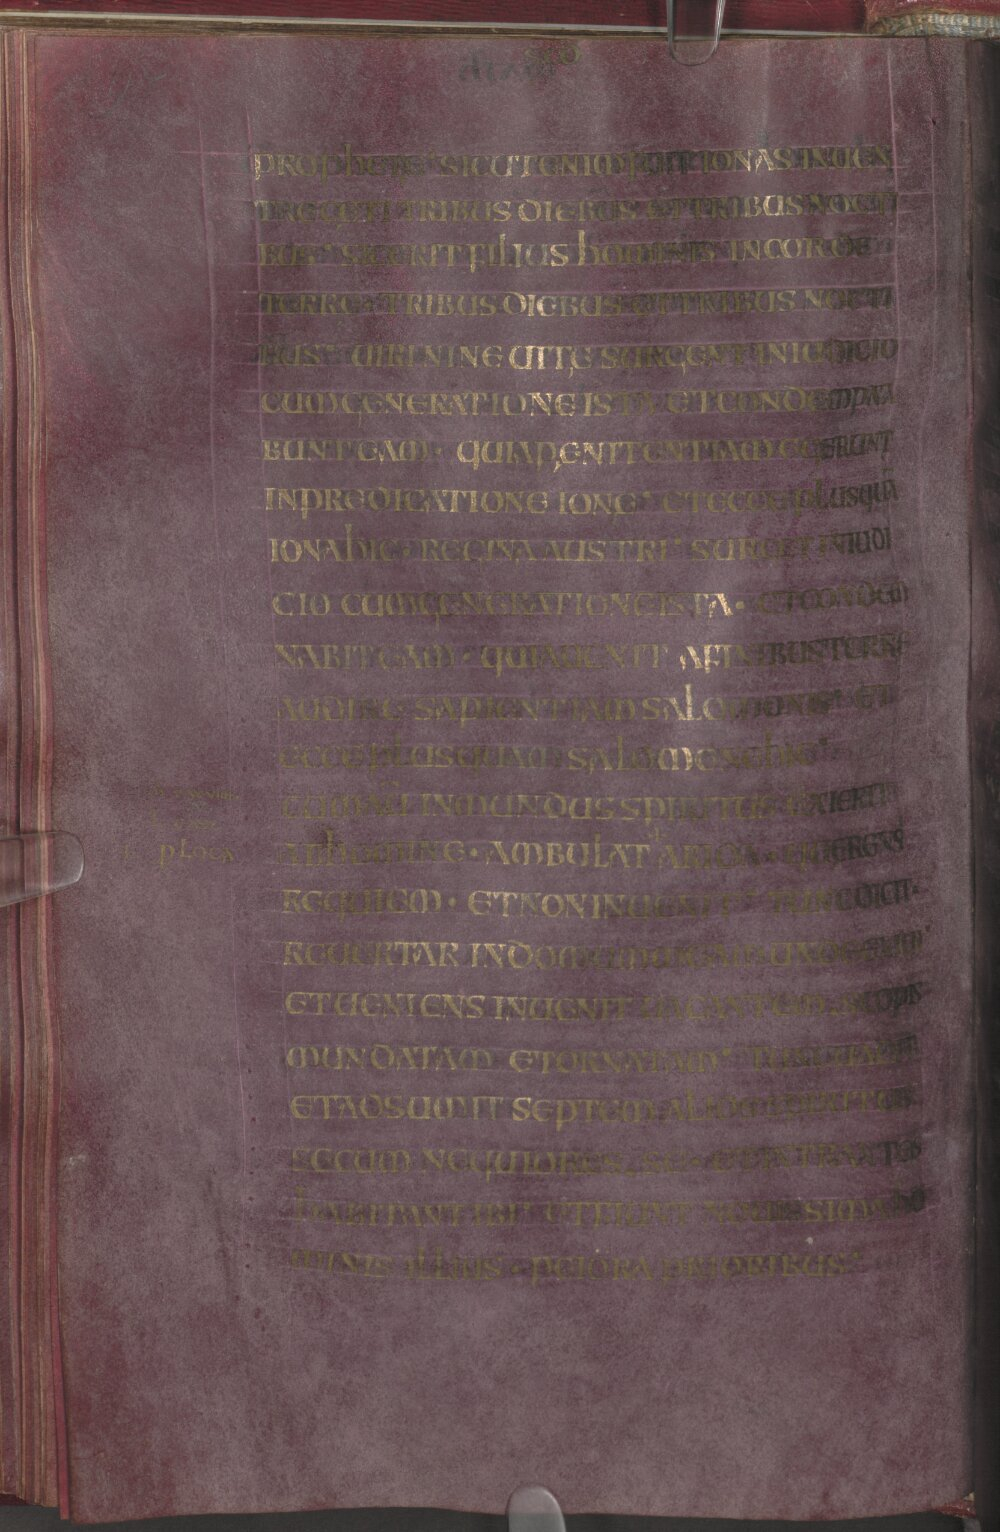 PROPHETE· SICUT ENIM FUIT IONAS IN UEN
TRE CETI TRIBUS DIEBUS ET TRIBUS NOCTI
BUS· SIC ERIT FILIUS HOMINIS IN CORDE
TERRE· TRIBUS DIEBUS ET TRIBUS NOCTI
BUS· UIRI NINEUITE SURGENT IN IUDICIO
CUM GENERATIONE ISTA· ET CONDEMPNA
BUNT EAM· QUIA PENITENTIAM EGERUNT
IN PREDICATIONE IONE· ET ECCE PLUSQUA
IONA HIC· REGINA AUSTRI· SURGET IN IUDI
CIO CUM GENERATIONE ISTA· ET CONDEM
NABIT EAM· QUIA UENIT A FINIBUS TERRE
AUDIRE SAPIENTIAM SALOMONIS· ET
ECCE PLUSQUAM SALOMON HIC·
CUM INMUNDUS SPIRITUS EXIERIT
AB HOMINE· AMBULAT ARIDA· QUERENS
P LOCA
REQUIEM· ET NON INUENIT· TUNC DICIT·
REUERTAR IN DOMUM MEAM UNDE EXIUI·
ET UENIENS INUENIT UACANTEM SCOPIS
MUNDATAM ET ORNATAM· TUNC UADIT
ET ADSUMIT SEPTEM ALIOS SPIRITUS
SECUM NEQUIORES SE· ET INTRANTES
HABITANT IBI· ET FIUNT NOUISSIMA HO
MINIS ILLIUS· PEIORA PRIORIBUS·